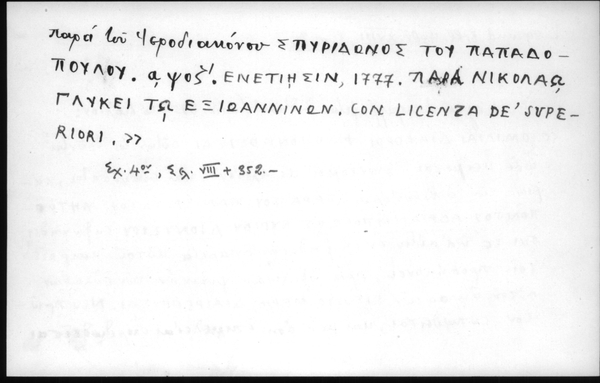 παρά τοῦ Ἱεροδιακόνου ΣΠΥΡΙΔΩΝΟΣ ΤΟΥ ΠΑΠΑΔΟ-
ΠΟΥΛΟΥ. α ψοζ'. ΕΝΕΤΙΗΣΙΝ, 1777. ΠΑΡΑ ΝΙΚΟΛΑΩ
ΓΛΥΚΕΙ ΤΩ ΕΞ ΙΩΑΝΝΙΝΩΝ. CON LICENZA DE' SUPE-
RIORI, »
Σχ. 4ον, Σελ. VIII + 352.-